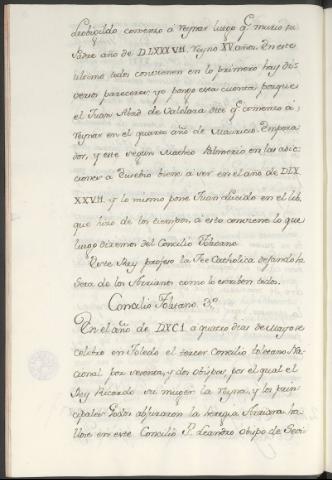 Leobigildo comenzo á reynar luego q.e murio su
Padre año de DLXXXVII. Reyno XV. años. En este
ultimo todos convienen en lo primero hay di-
versos pareceres; yo pongo esta cuenta porque
el Juan Abad de Valclara dice q.e comenzo á
reynar en el quarto año de Mauricio Empera-
dor, y este segun Matheo Palmerio en las adic-
ciones a Eusebio biene a ser en el año de DLX
XXVII. y lo mismo pone Juan Lucido en el lib.
que hizo de los tiempos, a esto conviene lo que
luego diremos del Concilio Toletano.
Este Rey profeso la Fee Catholica, dejando la
Secta de los Arrianos como lo escriben todos.
Concilio Toletano 3.º
En el año de DXCI. a quatro dias de Mayo se
celebro en Toledo el tercer Concilio Toletano Na-
cional por sesenta, y dos obispos, por el qual el
Rey Ricaredo su muger la Reyna, y los prin-
cipales Godos abjuraron la heregia Arriana ha-
llose en este Concilio S. Leandro obispo de Sevi-